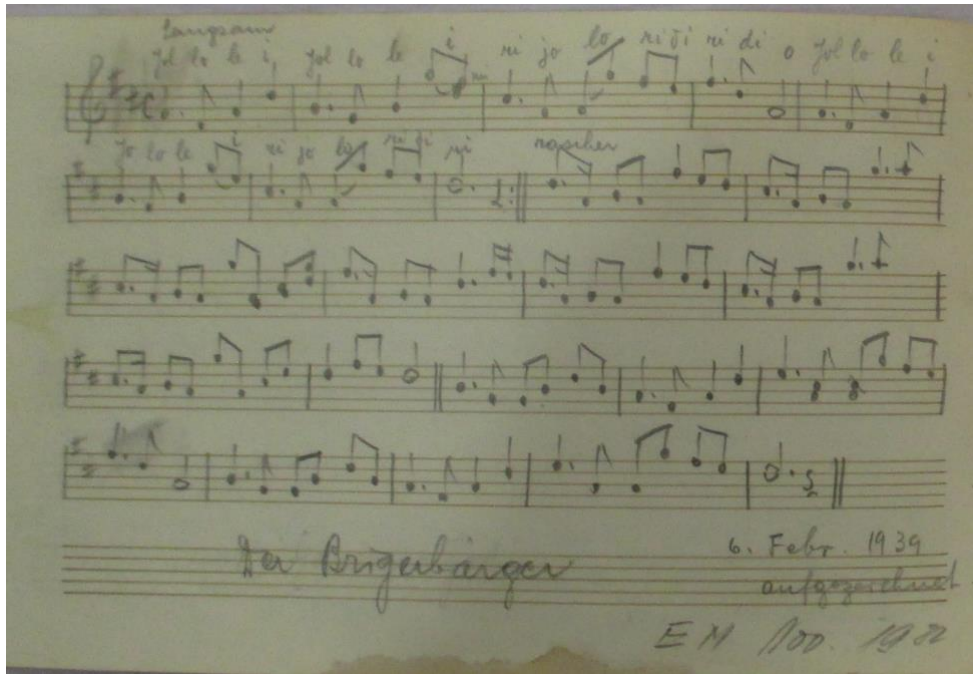 Langsam
Jol lo le i Jol lo le i ri jo lo ri di ri di o Jol lo le i
Jo lo le i ri jo lo ri di ri rascher
Der Brigerbärger 6. Febr. 1939
aufgezeichnet
E M